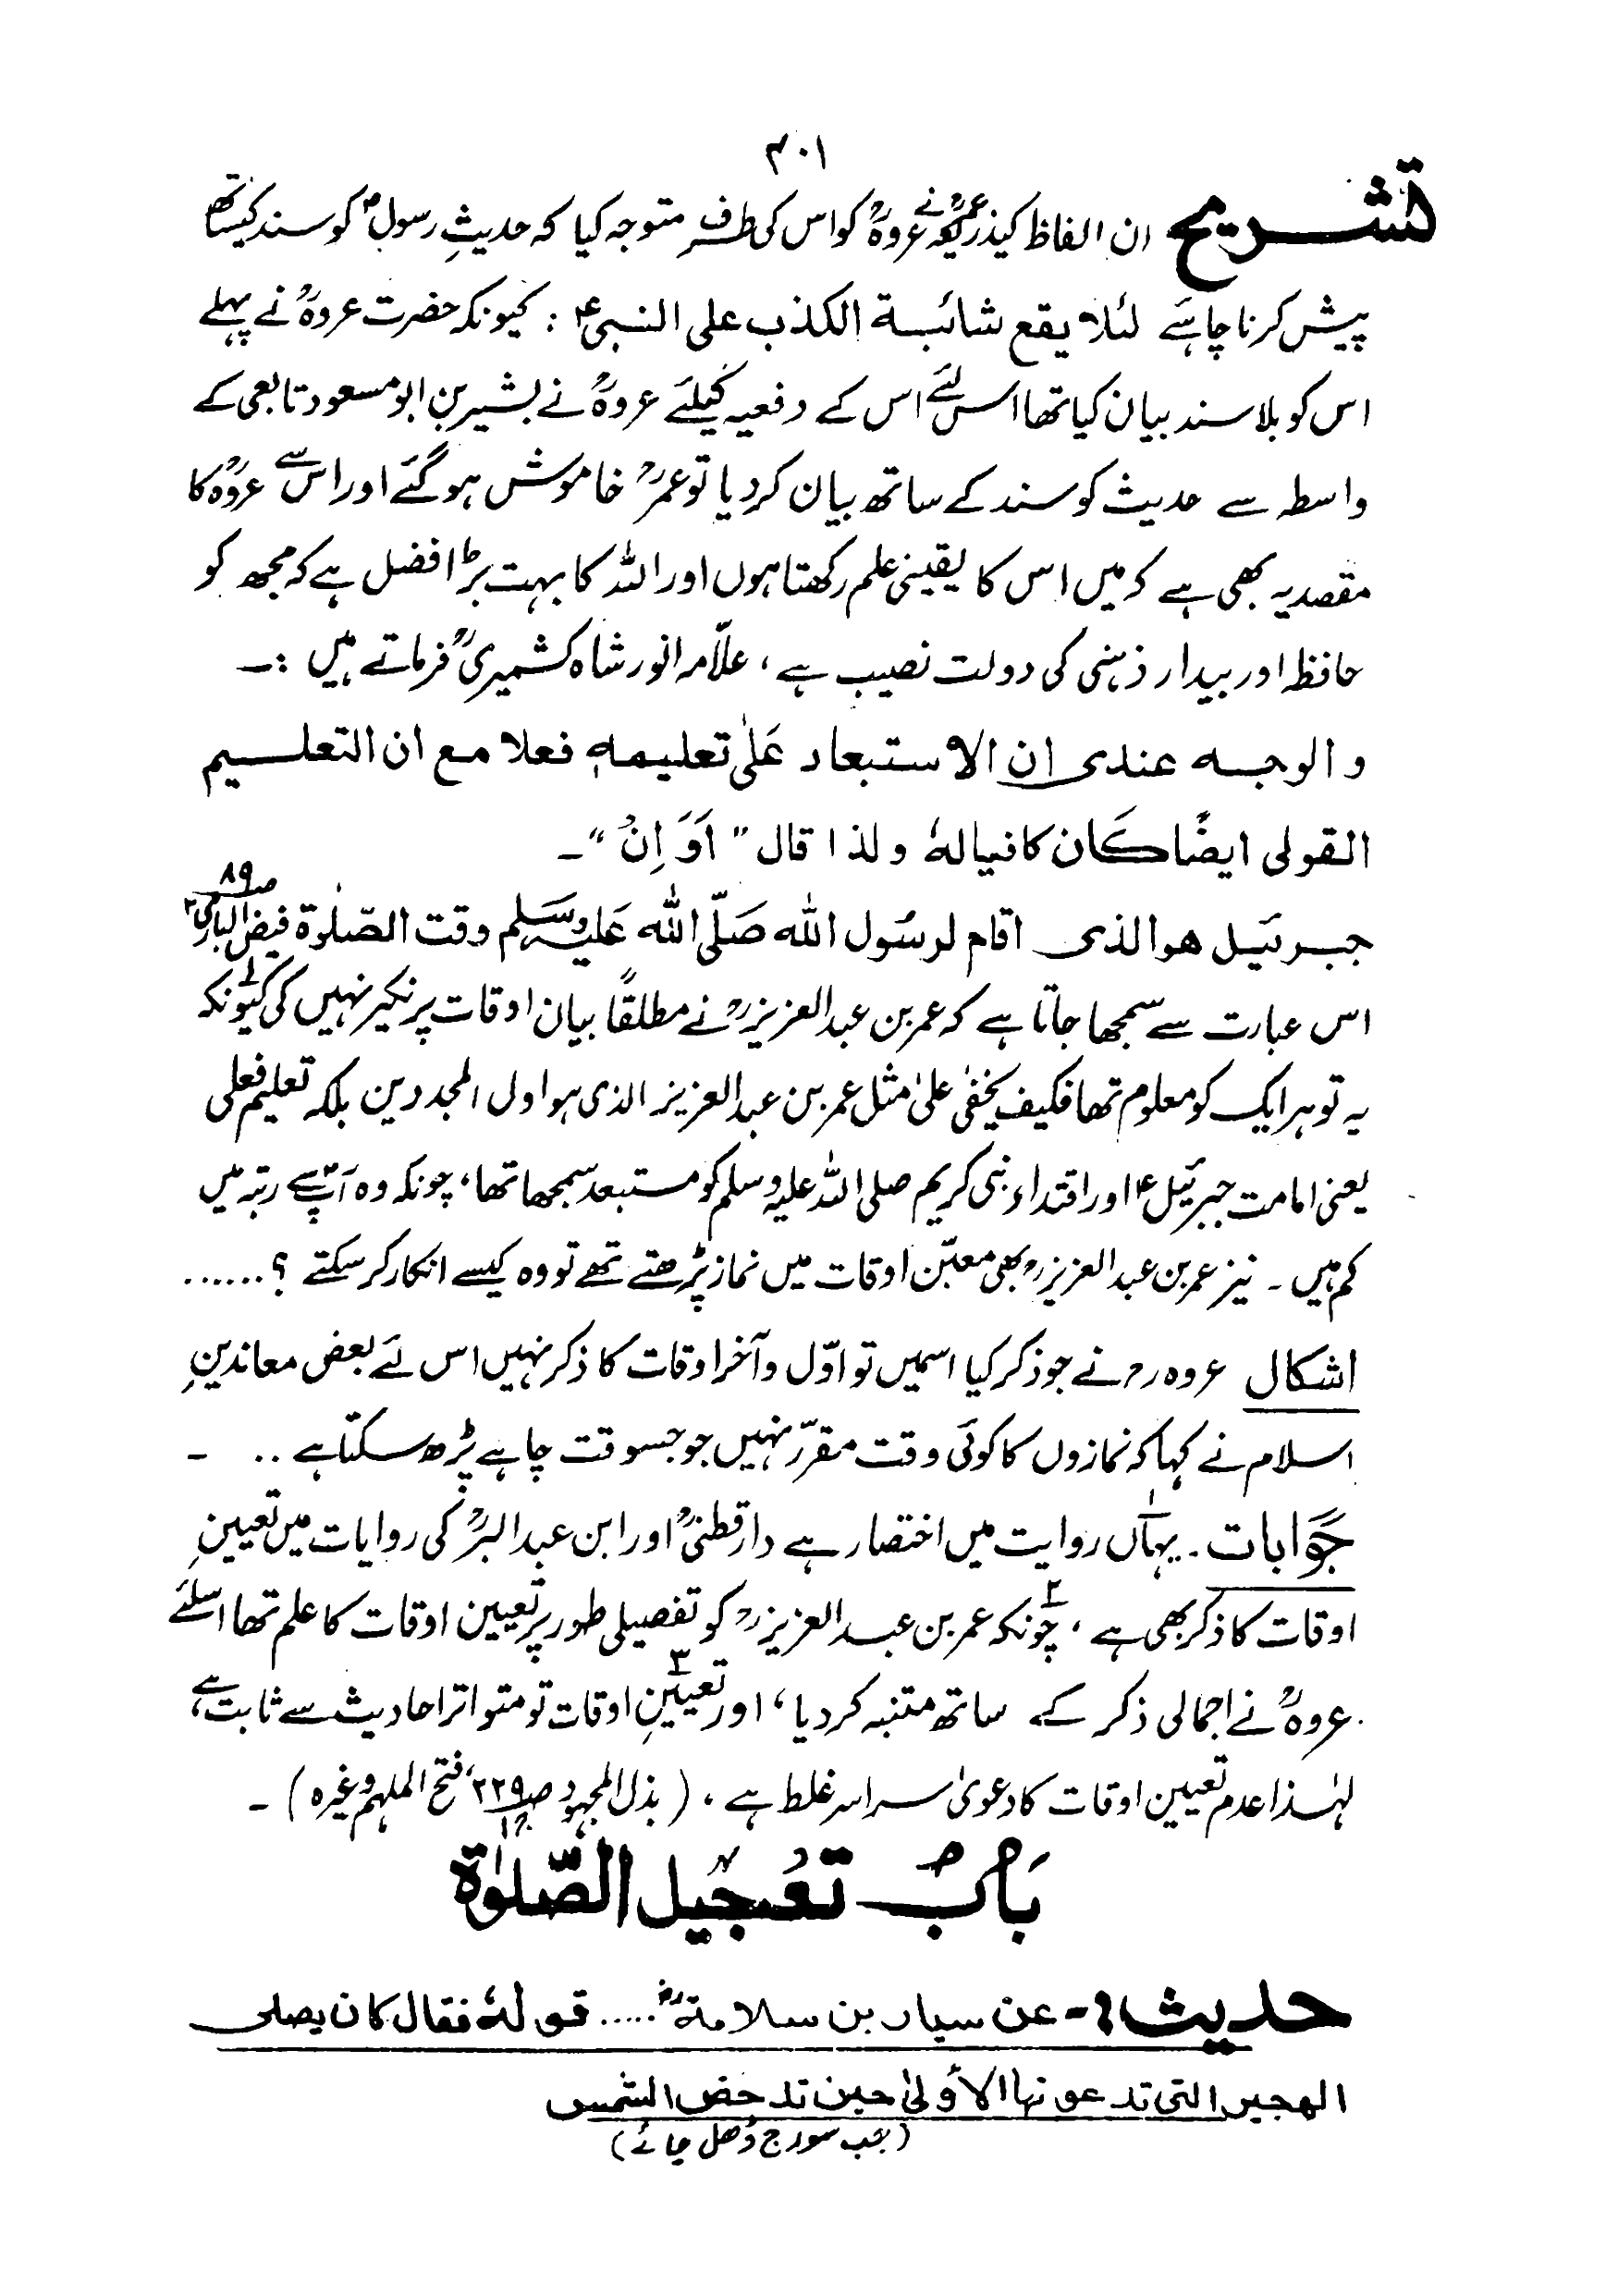 ۴۰۱
تشریح ان الفاظ کیذریعہ عمرؒ نے عروہؒ کو اس کی طرف متوجہ کیا کہ حدیثِ رسولؐ کو سند کیساتھ
پیش کرنا چاہئے لئلا یقع شائبة الکذب علی النبیؑ : کیونکہ حضرت عروہؒ نے پہلے
اس کو بلا سند بیان کیا تھا اس لئے اس کے دفعیہ کیلئے عروہؒ نے بشیر بن ابو مسعود تابعی کے
واسطہ سے حدیث کو سند کے ساتھ بیان کر دیا تو عمرؒ خاموش ہو گئے اور اس سے عروہؒ کا
مقصد یہ بھی ہے کہ میں اس کا یقینی علم رکھتا ہوں اور اللہ کا بہت بڑا فضل ہے کہ مجھ کو
حافظہ اور بیدار ذہنی کی دولت نصیب ہے ، علّامہ انور شاہ کشمیریؒ فرماتے ہیں :۔
والوجہ عندی ان الاستبعاد عَلیٰ تعلیمہٖ فعلا مع ان التعلیم
القولی ایضًا کَان کافیا لہٗ ولذا قال " اَوَ اِنَّ " ۔
جبرئیل ھوالذی اقام لرسُول اللّٰہ صَلّی اللّٰہ عَلیہ وسَلم وقت الصّلٰوة فیض الباری ص۸۹ ۲
اس عبارت سے سمجھا جاتا ہے کہ عمر بن عبد العزیزؒ نے مطلقًا بیان اوقات پر نکیر نہیں کی کیونکہ
یہ تو ہر ایک کو معلوم تھا فکیف یخفیٰ علیٰ مثل عمر بن عبد العزیز الذی ہو اول المجددین بلکہ تعلیم فعلی
یعنی امامت جبرئیلؑ اور اقتداء نبی کریم صلی اللہ علیہ وسلم کو مستبعد سمجھا تھا ، چونکہ وہ آپؐ سے رتبہ میں
کم ہیں ۔ نیز عمر بن عبد العزیزؒ بھی معیّن اوقات میں نماز پڑھتے تھے تو وہ کیسے انکار کر سکتے ؟ ......
اشکال عروہ رح نے جو ذکر کیا اسمیں تو اوّل و آخر اوقات کا ذکر نہیں اس لئے بعض معاندینِ
اسلام نے کہا کہ نمازوں کا کوئی وقت مقرّر نہیں جو جسوقت چاہے پڑھ سکتا ہے .. ۔
جَوابات ۔ ۱ یہاں روایت میں اختصار ہے دار قطنیؒ اور ابن عبد البرؒ کی روایات میں تعیینِ
اوقات کا ذکر بھی ہے ، ۲ چونکہ عمر بن عبد العزیزؒ کو تفصیلی طور پر تعیین اوقات کا علم تھا اسلئے
عروہؒ نے اجمالی ذکر کے ساتھ متنبہ کر دیا ، ۳ اور تعیینِ اوقات تو متواتر احادیث سے ثابت ہے ،
لہٰذا عدم تعیین اوقات کا دعویٰ سراسر غلط ہے ، ( بذل المجہود ص۲۲۹ ، فتح الملہم وغیرہ ) ۔
بَابُ تعُجیل الصّلوٰة
حدیث :- عن سیار بن سلامةؓ ..... قولہٗ فقال کان یصلی
الھجیر التی تدعونھا الأولیٰ حین تدحض الشمس
( جب سورج ڈھل جائے )